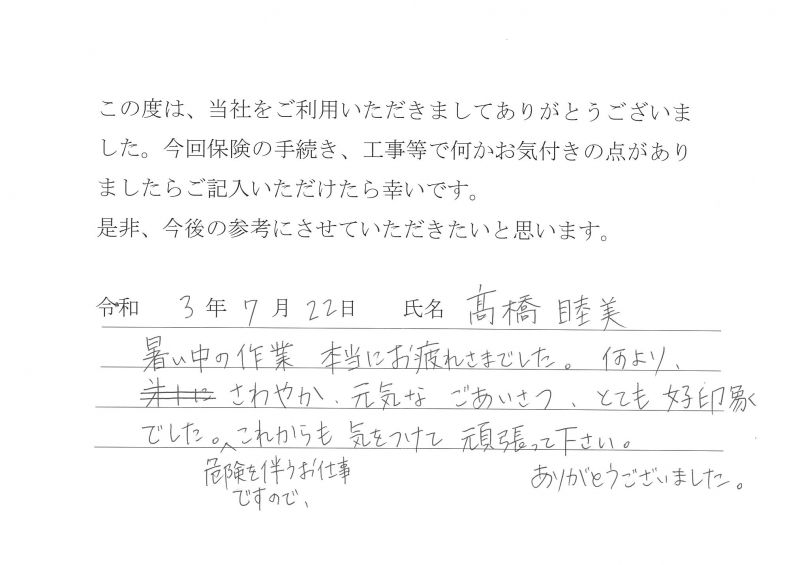 この度は、当社をご利用いただきましてありがとうございま
した。今回保険の手続き、工事等で何かお気付きの点があり
ましたらご記入いただけたら幸いです。
是非、今後の参考にさせていただきたいと思います。
令和 3年 7月 22日 氏名 髙橋 睦美
暑い中の作業 本当にお疲れさまでした。何より、
さわやか、元気な ごあいさつ、とても 好印象
でした。これからも 気をつけて 頑張って下さい。
危険を伴うお仕事
ですので、
ありがとうございました。